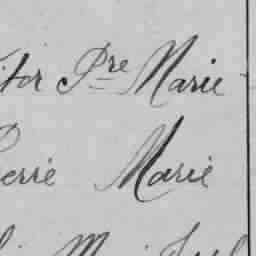 itor Pre Marie
Pierre Marie